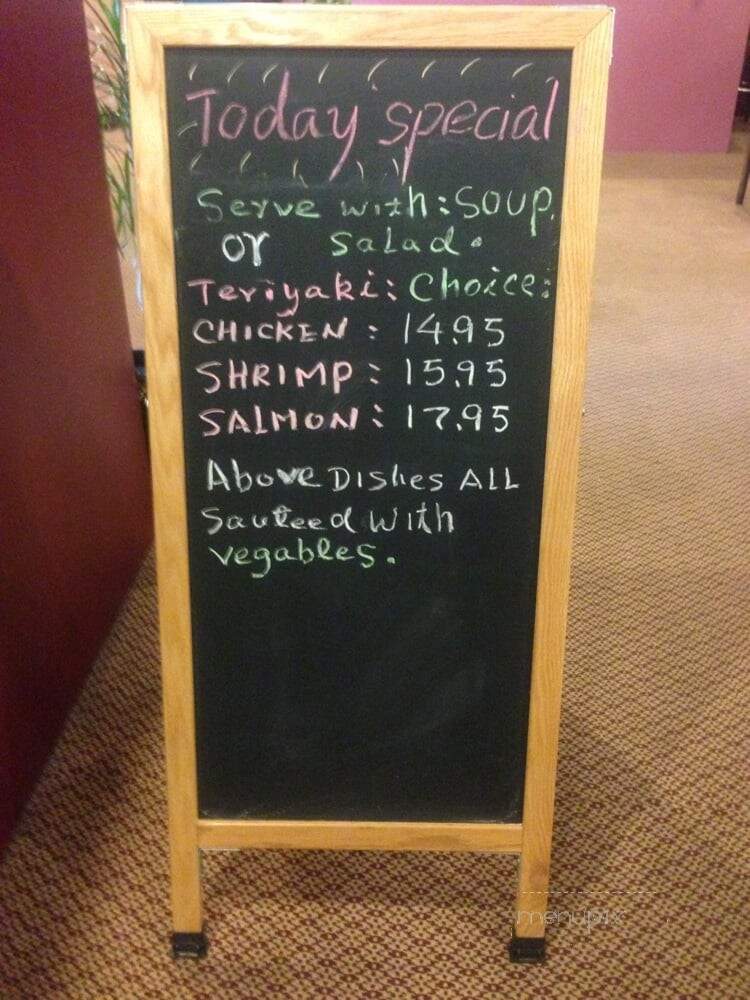 Today special
Serve with: SOUP.
or salad.
Teriyaki: Choice:
CHICKEN : 14.95
SHRIMP : 15.95
SALMON : 17.95
Above Dishes ALL
Sauteed with
vegables.
menupix